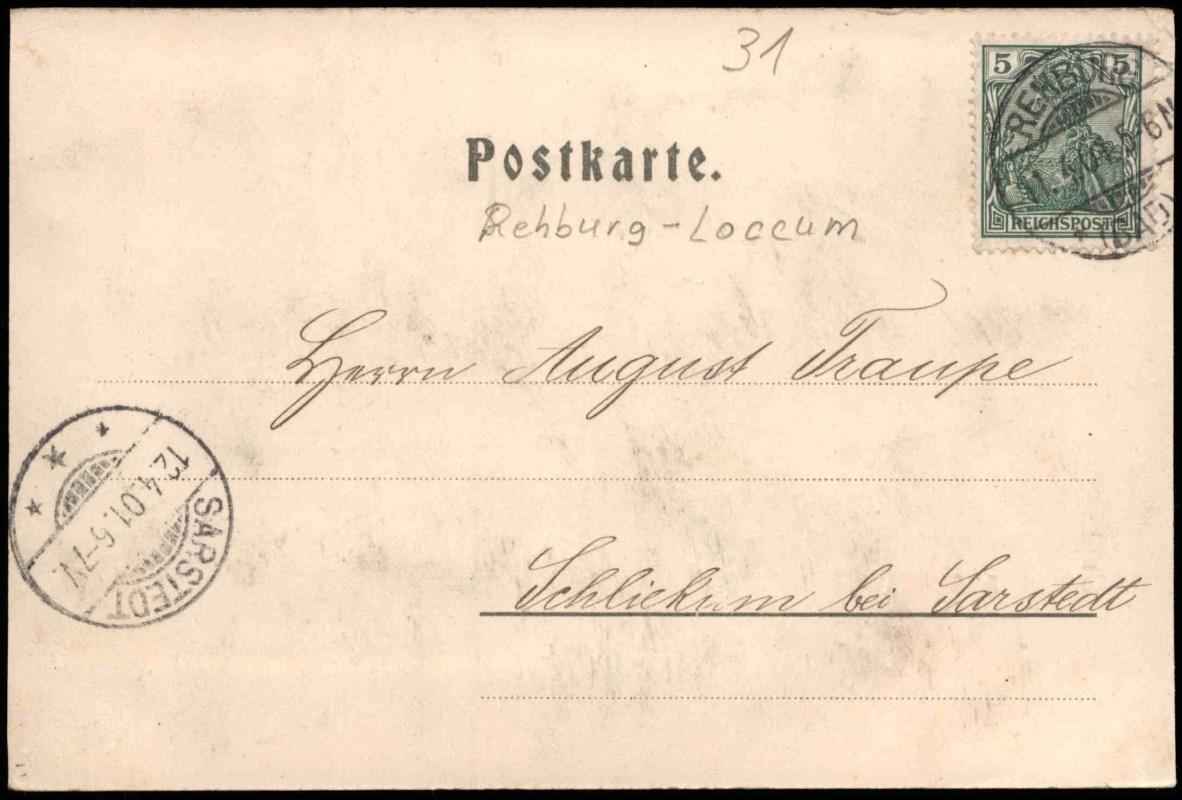 31
5 5
REHBURG
11.4.01. 5-6N
(BAD)
REICHSPOST
Postkarte.
Rehburg-Loccum
Herrn August Traupe
12.4.01. 6-7V.
SARSTEDT
Schliekum bei Sarstedt